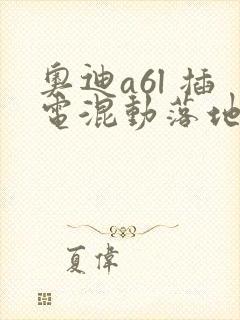 奥迪a6l 插
電混動落地
夏偉